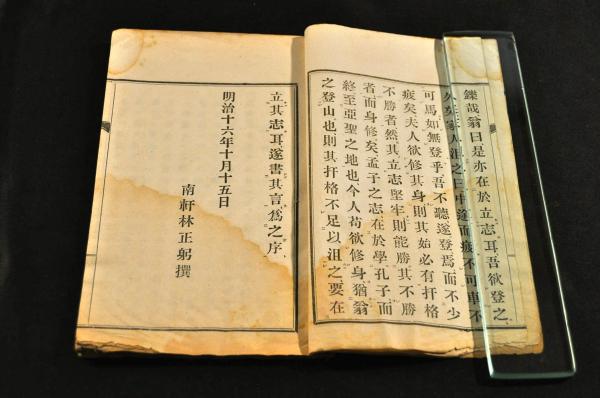 鑠哉翁曰是亦在於立志耳吾欲登之
久矣家人沮之曰中途而疲不可車不
可馬如無登乎吾不聽遂登焉而不少
疲矣夫人欲修其身則其始必有扞格
不勝者然其立志堅牢則能勝其不勝
者而身修矣孟子之志在於學孔子而
終至亞聖之地也今人苟欲修身猶翁
之登山也則其扞格不足以沮之要在
立其志耳遂書其言爲之序
明治十六年十月十五日
南軒林正躬撰